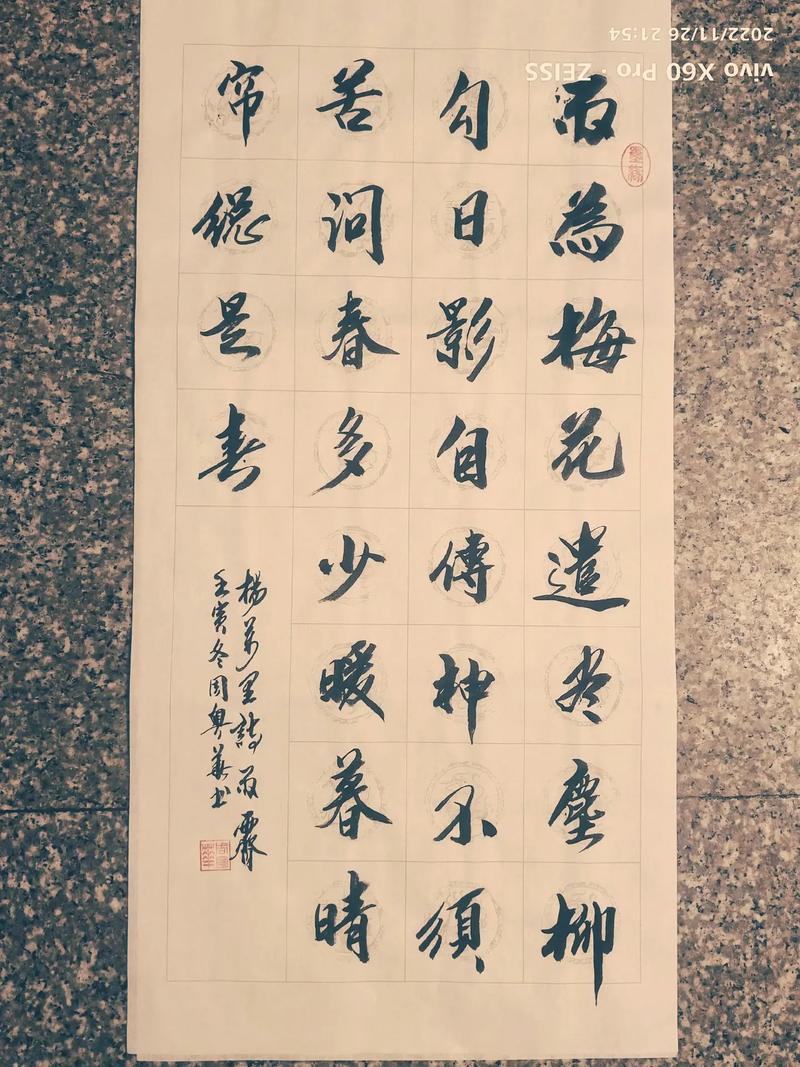 雨為梅花遣尽塵柳
勾日影自傳神不須
苦问春多少暖暮晴
帘総是春
楊萬里詩雨霽
壬寅冬周粤華书
vivo X60 Pro · ZEISS
2022/11/26 21:54